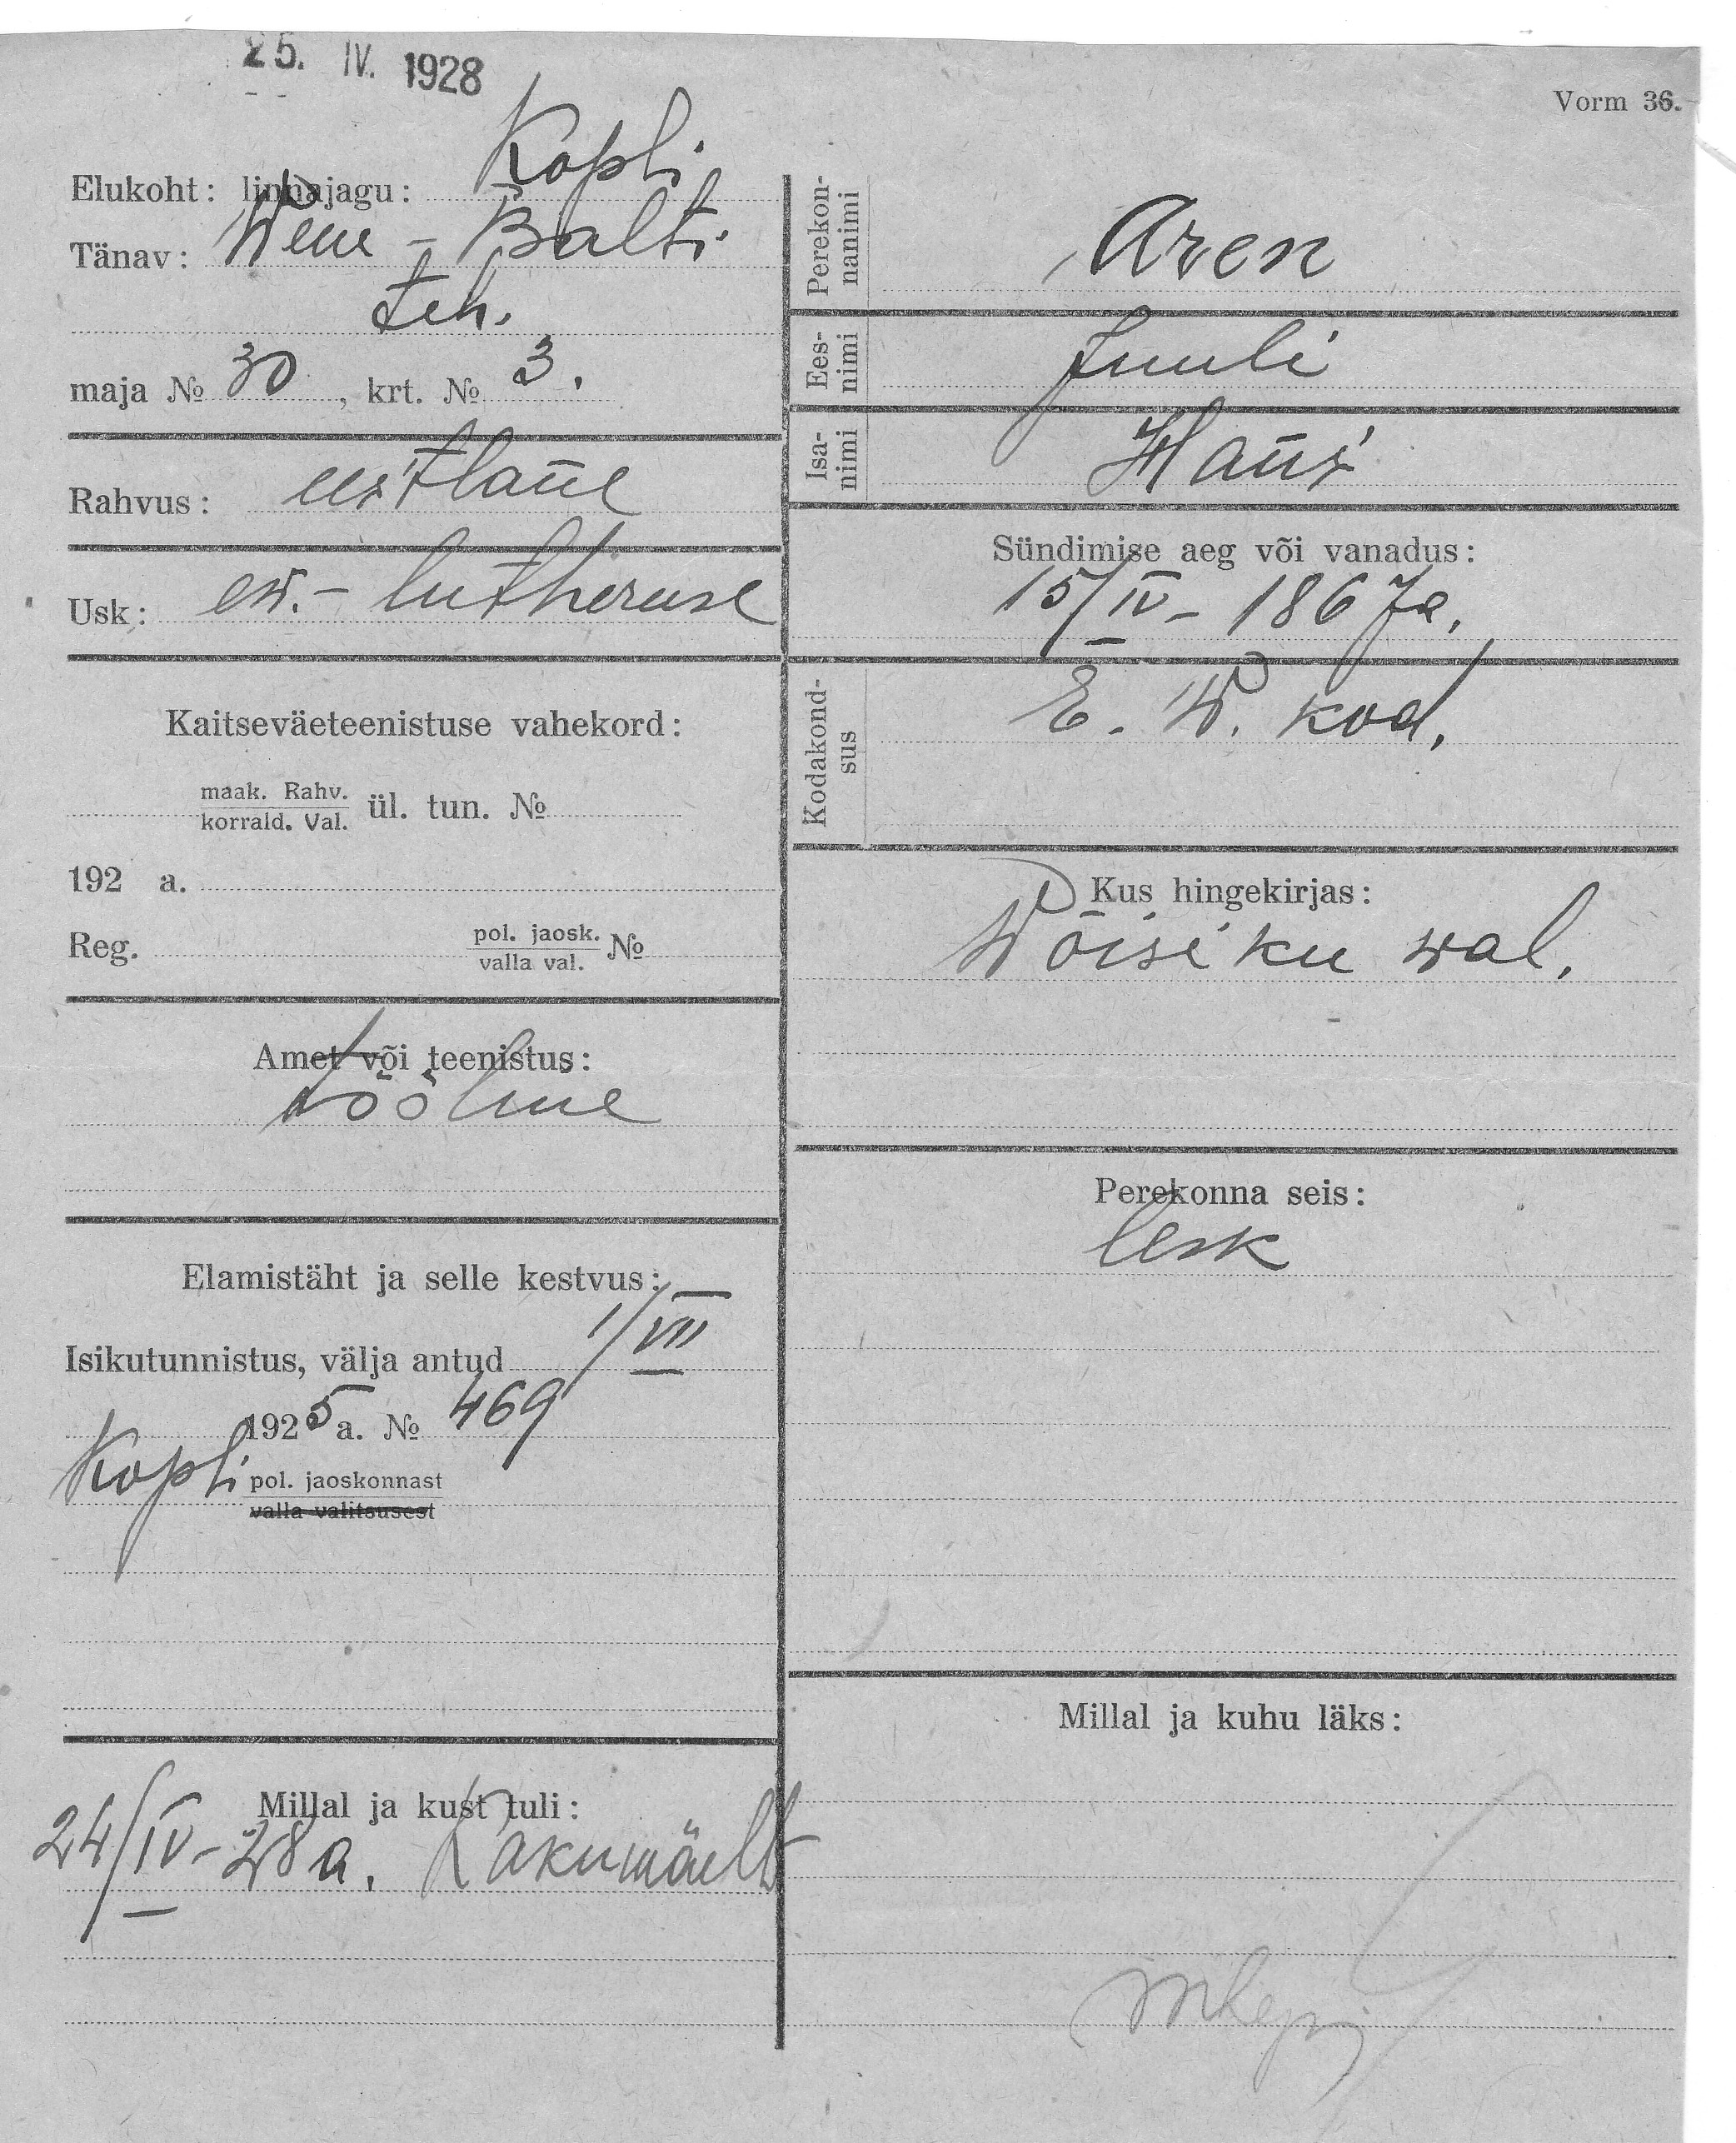 25. IV. 1928
Vorm 36.
Elukoht: linnajagu: Kopli
Tänav: Wene - Balti
teh.
maja № 30, krt. № 3.
Rahvus: eestlane
Usk: ew.- lutheruse
Kaitseväeteenistuse vahekord:
maak. Rahv.
korrald. Val. ül. tun. №
192 a.
Reg. pol. jaosk. №
valla val.
Amet või teenistus:
tööline
Elamistäht ja selle kestvus:
Isikutunnistus, välja antud 1/VII
1925 a. № 469
Kopli pol. jaoskonnast
valla valitsusest
Millal ja kust tuli:
24/IV-28 a. Kakumäelt
Perekon-
nanimi
Aren
Ees-
nimi
Juuli
Isa-
nimi
Hans
Sündimise aeg või vanadus:
15/IV - 1867 a.
Kodakond-
sus
E. W. kod.
Kus hingekirjas:
Wõisiku wal.
Perekonna seis:
lesk
Millal ja kuhu läks: